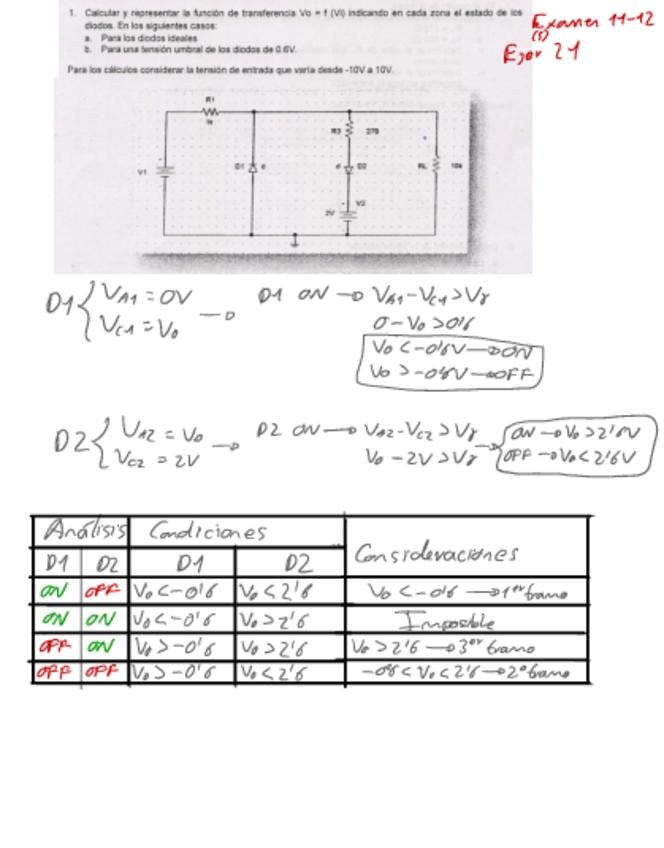 1. Calcular y representar la función de transferencia Vo = f (Vi) indicando en cada zona el estado de los
diodos. En los siguientes casos:
a. Para los diodos ideales
b. Para una tensión umbral de los diodos de 0.6V.
Para los cálculos considerar la tensión de entrada que varía desde -10V a 10V.
Examen 11-12
(1)
Ejer 21
R1
1k
R3 270
V1 D1 D2 RL 10k
V2
2V
D1 { VA1 = 0V
VC1 = Vo
D1 ON → VA1 - VC1 > Vγ
0 - Vo > 0'6
Vo < -0'6V → ON
Vo > -0'6V → OFF
D2 { VA2 = Vo
VC2 = 2V
D2 ON → VA2 - VC2 > Vγ
Vo - 2V > Vγ
ON → Vo > 2'6V
OFF → Vo < 2'6V
Análisis Condiciones Consideraciones
D1 D2 D1 D2
ON OFF Vo < -0'6 Vo < 2'6 Vo < -0'6 → 1er tramo
ON ON Vo < -0'6 Vo > 2'6 Imposible
OFF ON Vo > -0'6 Vo > 2'6 Vo > 2'6 → 3er tramo
OFF OFF Vo > -0'6 Vo < 2'6 -0'6 < Vo < 2'6 → 2º tramo